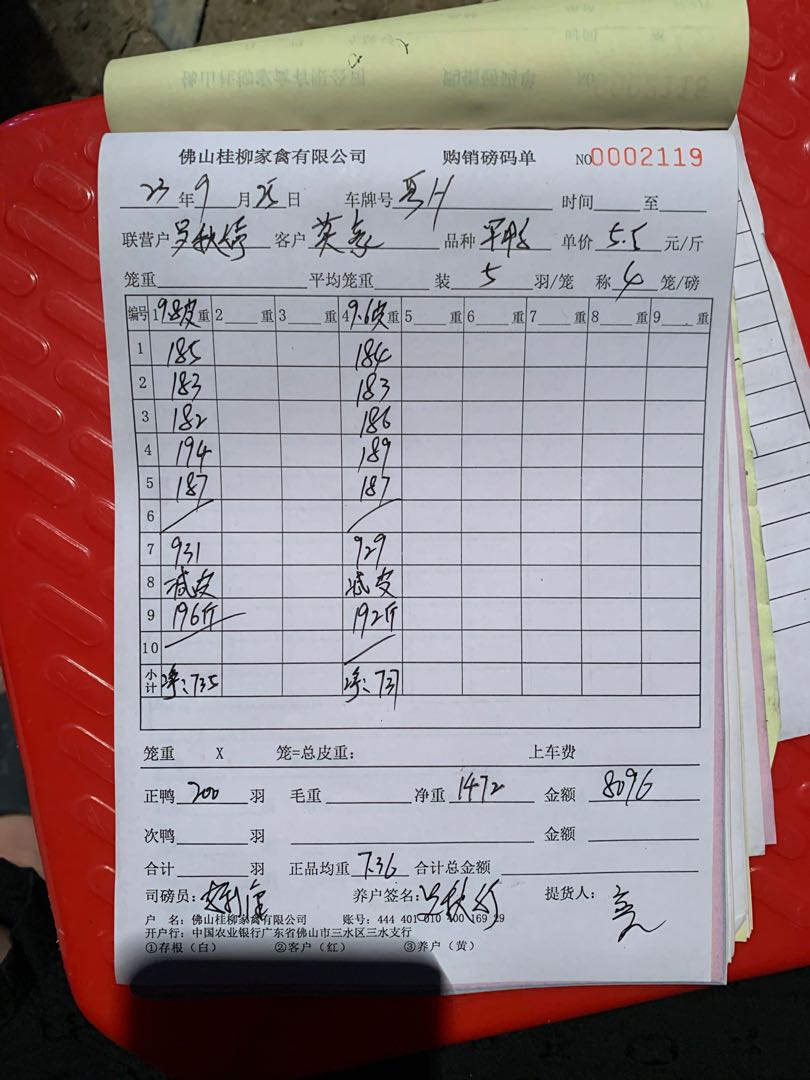 佛山桂柳家禽有限公司 购销磅码单 NO0002119
23年9月25日 车牌号 时间 至
联营户 吴秋婷 客户 英家 品种 单价5.5元/斤
笼重 平均笼重 装5羽/笼 称4笼/磅
编号 1 9.8皮重 2 重 3 重 4 9.6皮重 5 重 6 重 7 重 8 重 9 重
1 185 184
2 183 183
3 182 186
4 194 189
5 187 187
6
7 931 929
8 减皮 减皮
9 196斤 192斤
10
小计 净:735 净:737
笼重 X 笼=总皮重: 上车费
正鸭200羽 毛重 净重1472 金额8096
次鸭 羽 金额
合计 羽 正品均重7.36 合计总金额
司磅员: 养户签名: 提货人:
户 名:佛山桂柳家禽有限公司 账号:444 401 010 400 169 29
开户行:中国农业银行广东省佛山市三水区三水支行
①存根(白) ②客户(红) ③养户(黄)